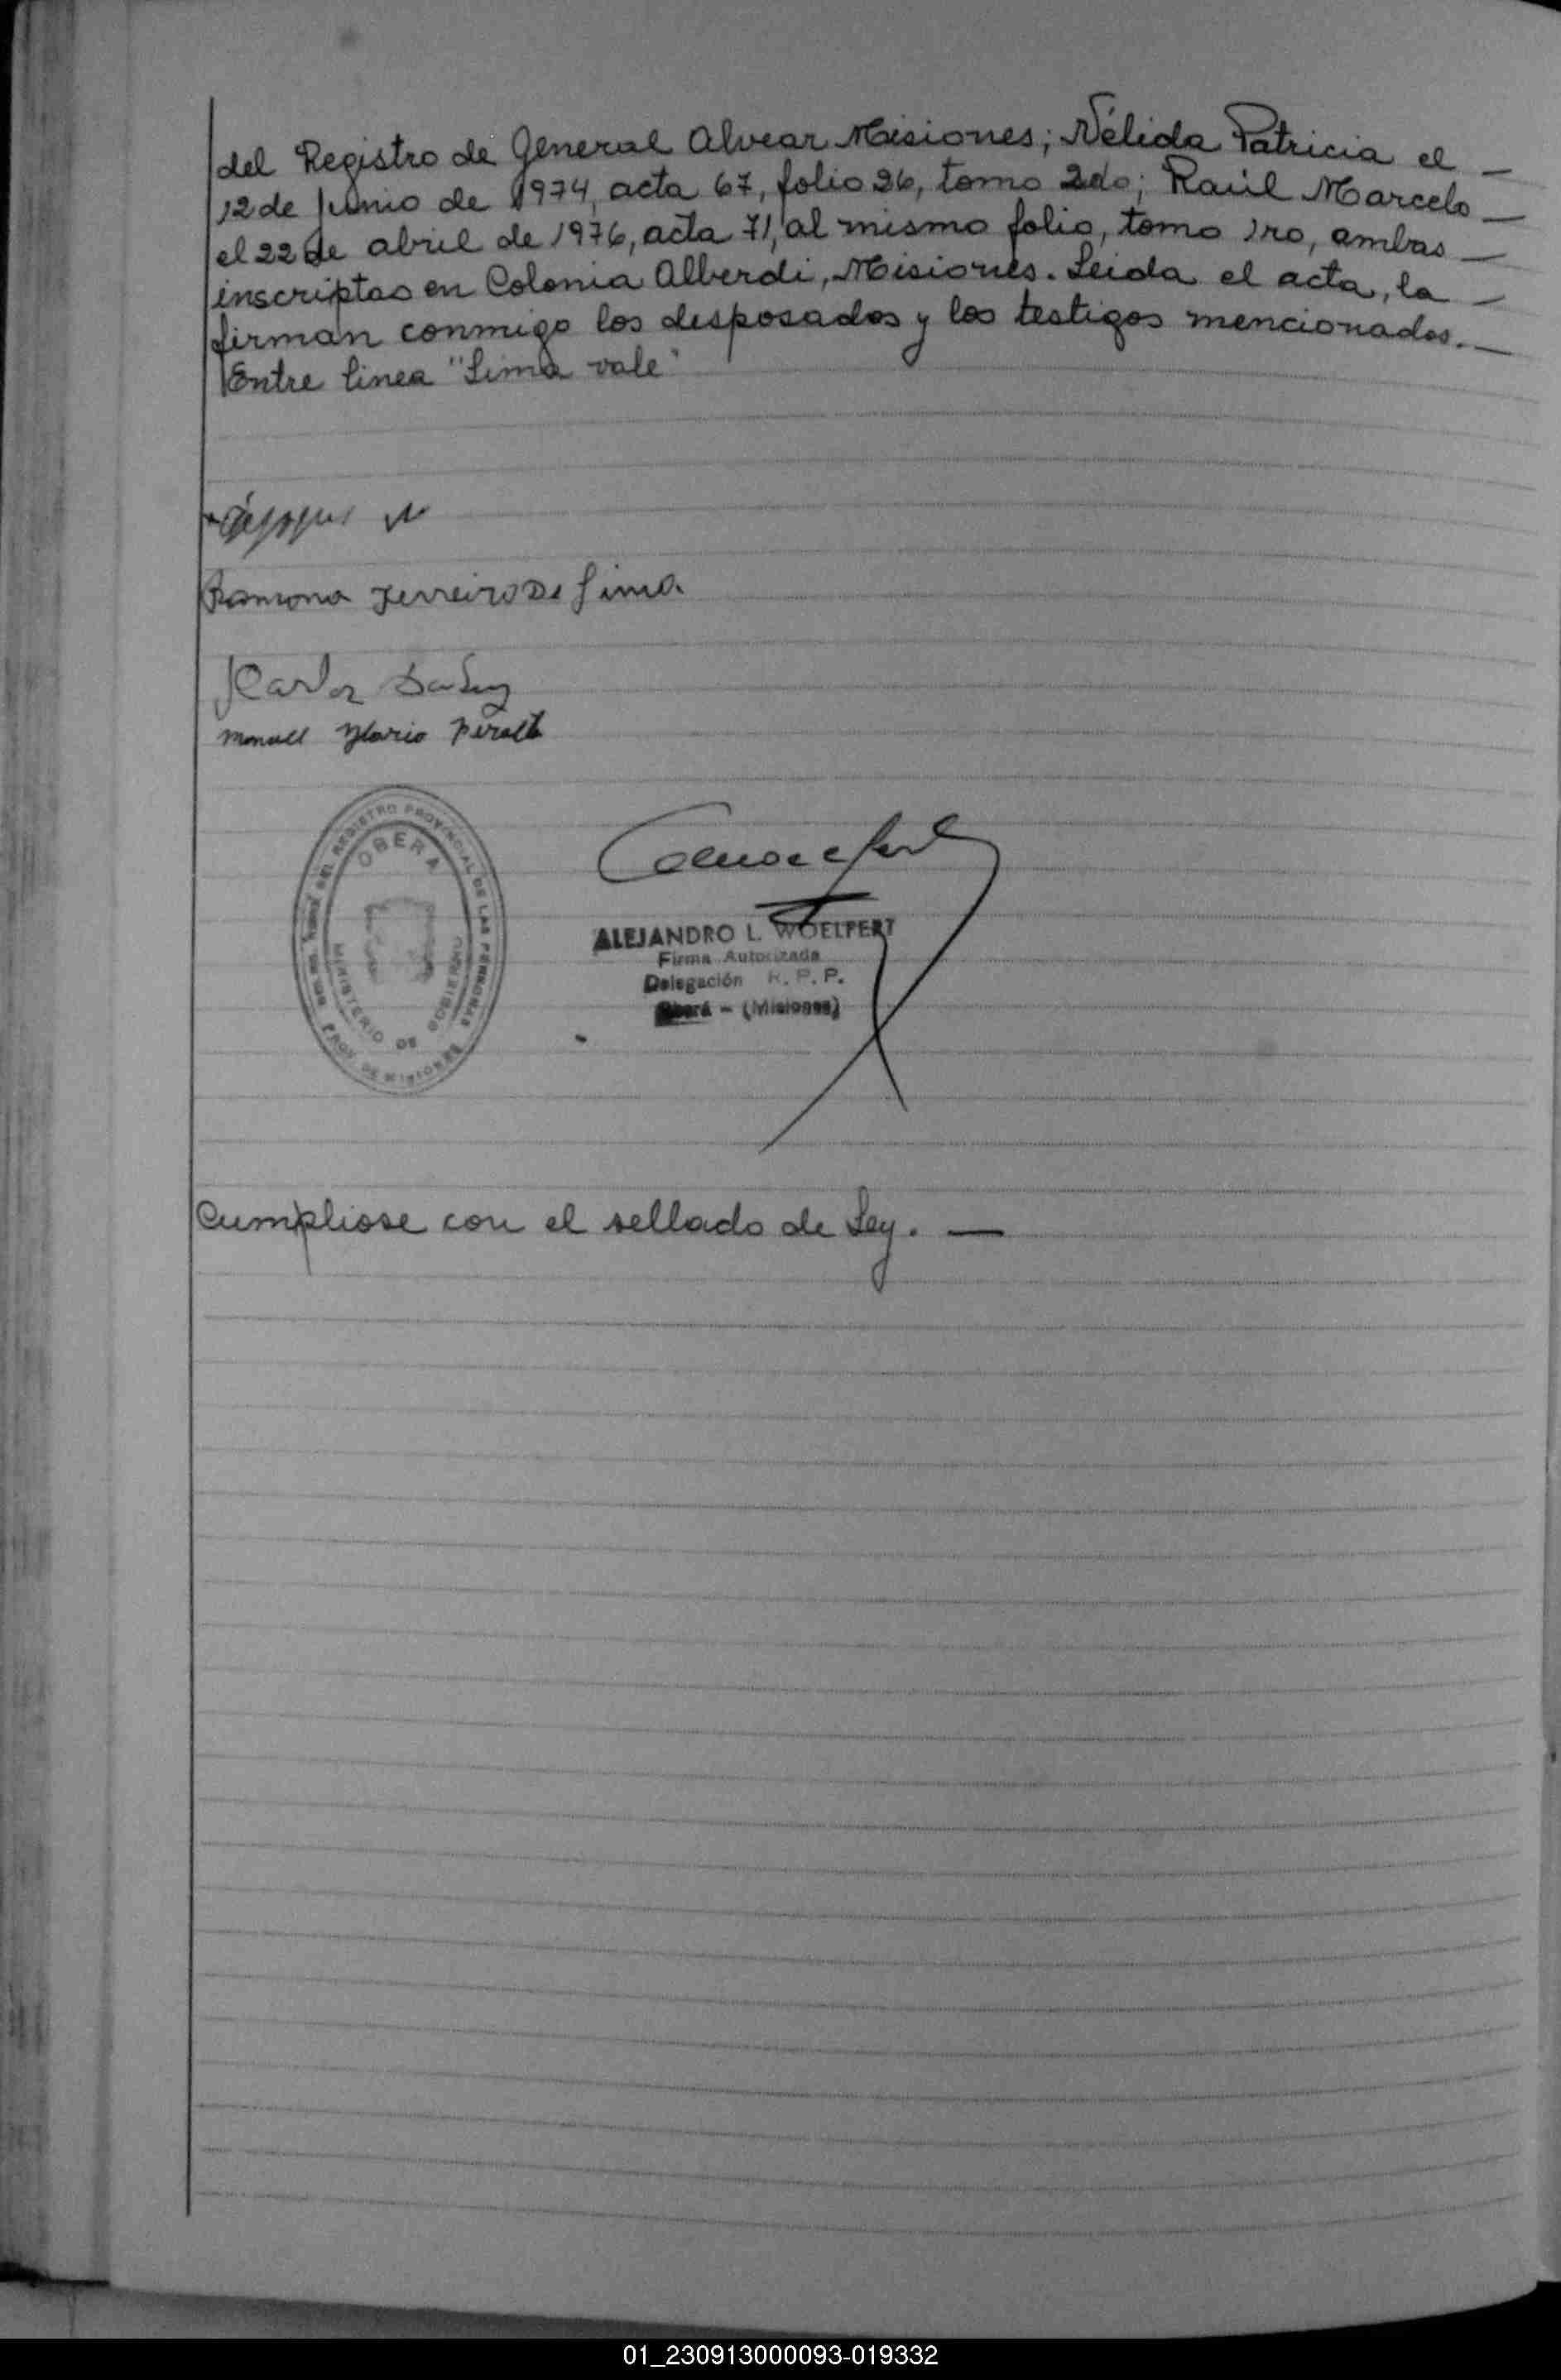 del Registro de General Alvear Misiones; Nélida Patricia el —
12 de Junio de 1974, acta 67, folio 26, tomo 2do; Raúl Marcelo —
el 22 de abril de 1976, acta 71, al mismo folio, tomo 1ro, ambas —
inscriptas en Colonia Alberdi, Misiones. Leida el acta, la —
firman conmigo los desposados y los testigos mencionados. —
Entre linea "Lima vale"
Ramona Ferreiro De Lima
Carlos
Manuel Ylario Peralta
DEL REGISTRO PROVINCIAL DE LAS PERSONAS
OBERA
MINISTERIO DE GOBIERNO
PROV. DE MISIONES
ALEJANDRO L. WOELFERT
Firma Autorizada
Delegación R. P. P.
Oberá - (Misiones)
Cumpliose con el sellado de Ley. —
01_230913000093-019332